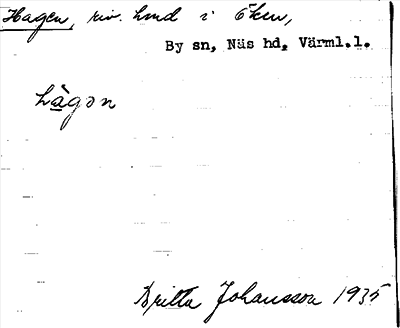 Hagen, riv. hmd i Öken,
By sn, Näs hd, Värml.l.
hàgon
Britta Johansson 1935